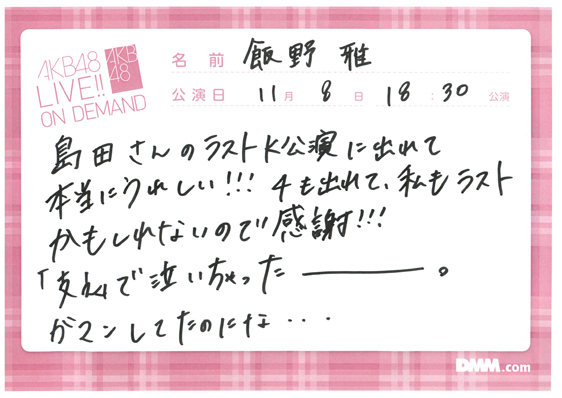 AKB48
LIVE!!
ON DEMAND
AKB
48
名前 飯野 雅
公演日 11月 8日 18:30 公演
島田さんのラストK公演に出れて
本当にうれしい!!! 4も出れて、私もラスト
かもしれないので感謝!!!
で泣いちゃった ――― 。
ガマンしてたのにな・・・
DMM.com